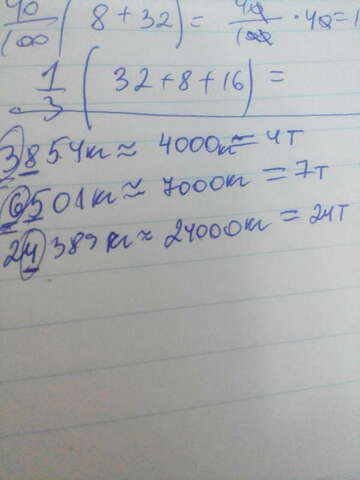 40/100 ( 8 + 32 ) = 40/100 · 40 = 1
1/3 ( 32 + 8 + 16 ) =
3854кг ≈ 4000кг ≈ 4т
6501кг ≈ 7000кг = 7т
24389кг ≈ 24000кг = 24т